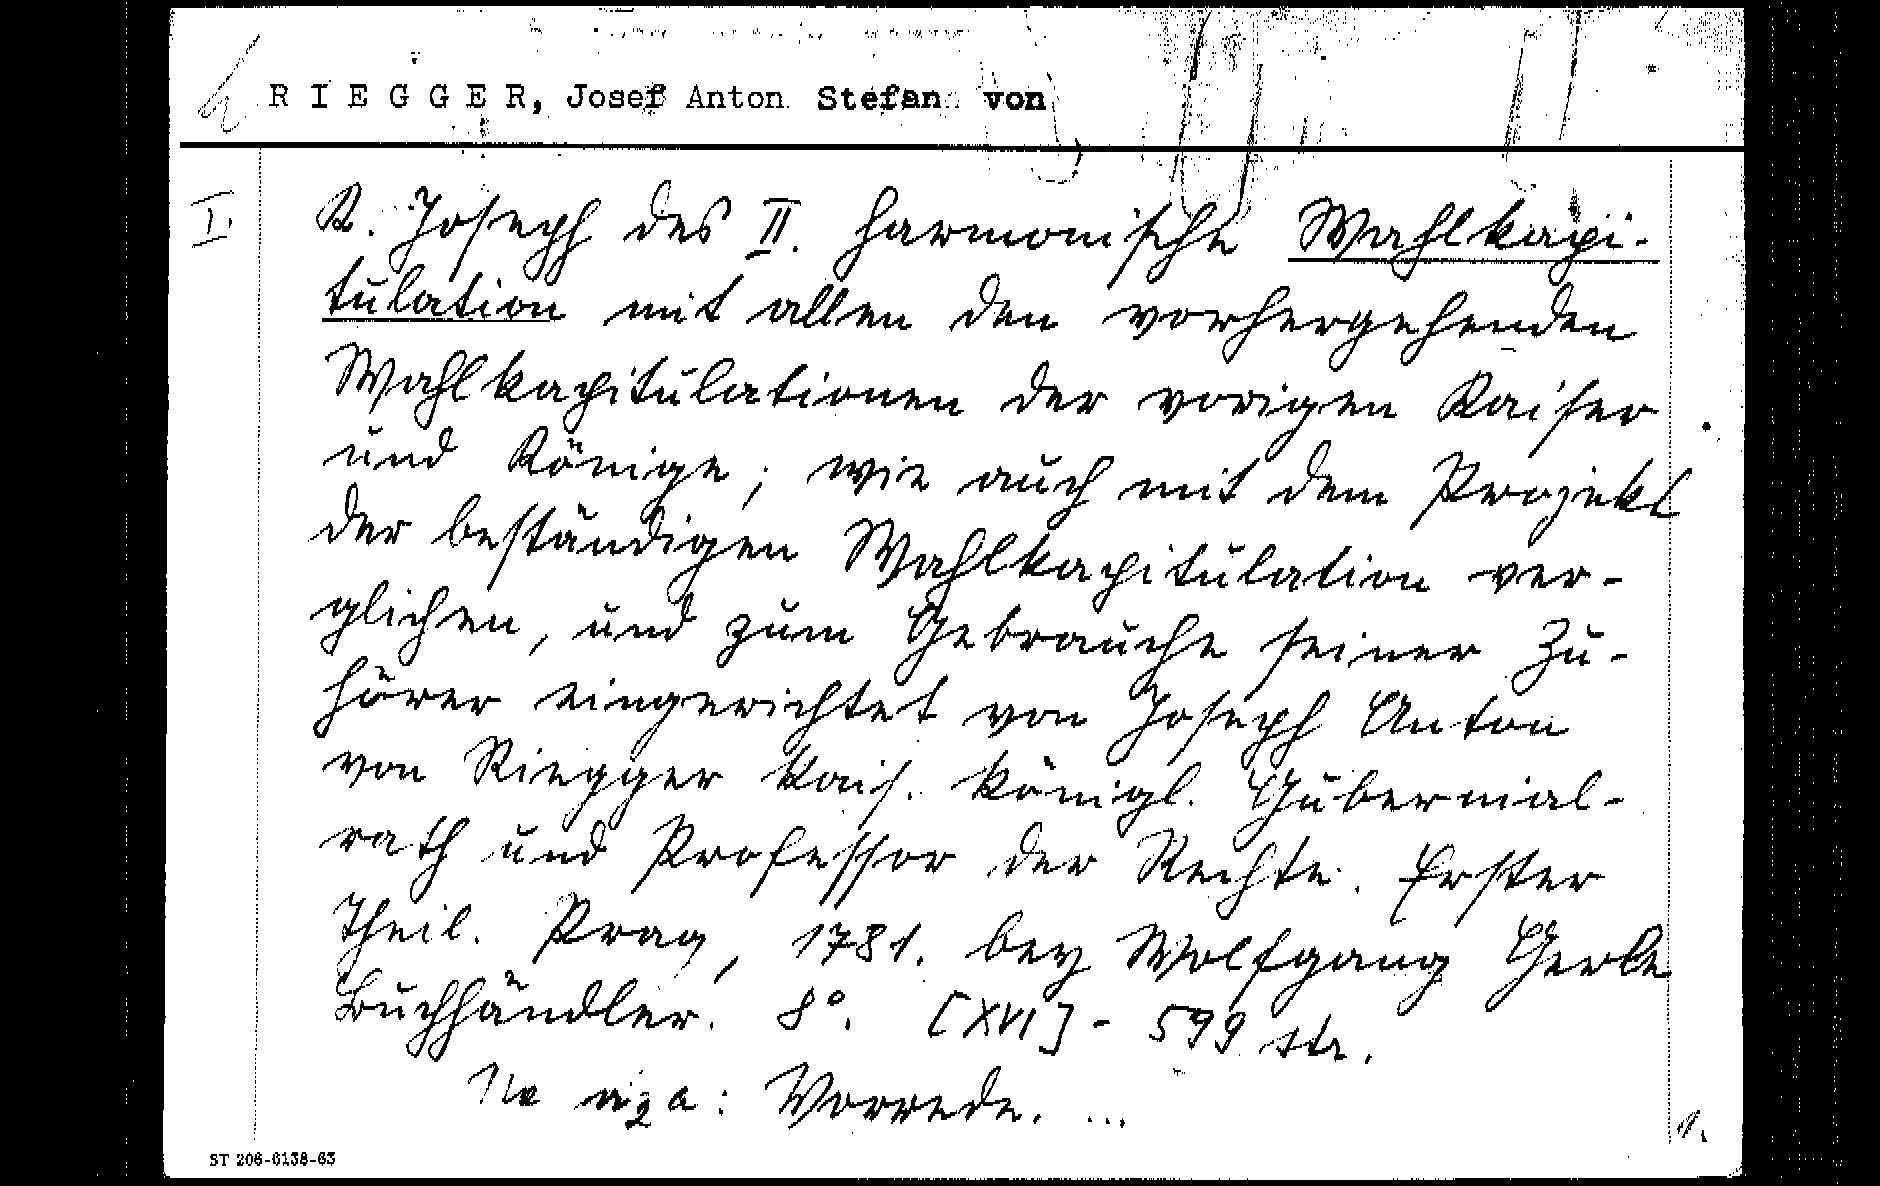 RIEGGER, Josef Anton Stefan von
I. K. Joseph des II. harmonische Wahlkapi-
tulation mit allen den vorhergehenden
Wahlkapitulationen der vorigen Kaiser
und Könige; wie auch mit dem Projekt
der beständigen Wahlkapitulation ver-
glichen, und zum Gebrauche seiner Zu-
hörer eingerichtet von Joseph Anton
von Riegger kais. königl. Gubernial-
rath und Professor der Rechte. Erster
Theil. Prag, 1781. bey Wolfgang Gerle
Buchhändler. 8°. [XVI] - 599 str.
Na a2a: Vorrede. ...
1.
ST 206-6138-63